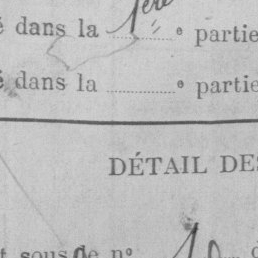 é dans la 1ère e partie
é dans la ........ e partie
DÉTAIL DES
t sous le n° 10